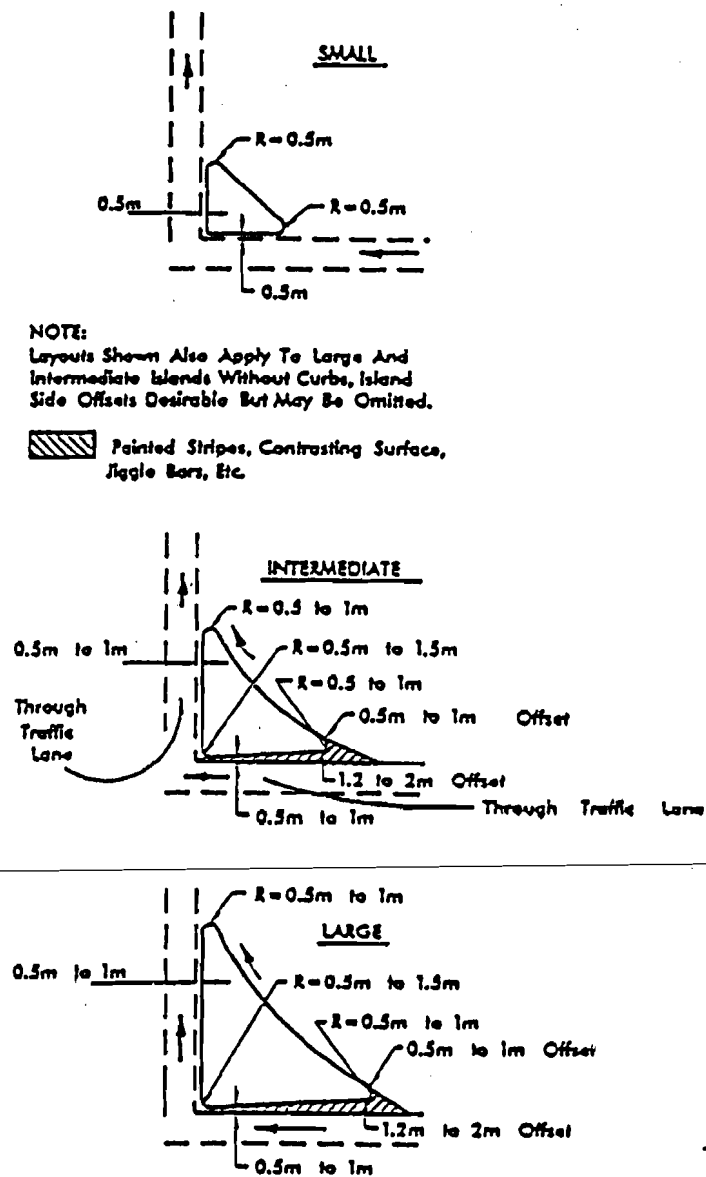 SMALL
R=0.5m
0.5m
R=0.5m
0.5m
NOTE:
Layouts Shown Also Apply To Large And
Intermediate Islands Without Curbs, Island
Side Offsets Desirable But May Be Omitted.
Painted Stripes, Contrasting Surface,
Jiggle Bars, Etc.
INTERMEDIATE
R=0.5 to 1m
0.5m to 1m
R=0.5m to 1.5m
R=0.5 to 1m
0.5m to 1m Offset
Through
Traffic
Lane
1.2 to 2m Offset
0.5m to 1m
Through Traffic Lane
R=0.5m to 1m
LARGE
0.5m to 1m
R=0.5m to 1.5m
R=0.5m to 1m
0.5m to 1m Offset
1.2m to 2m Offset
0.5m to 1m